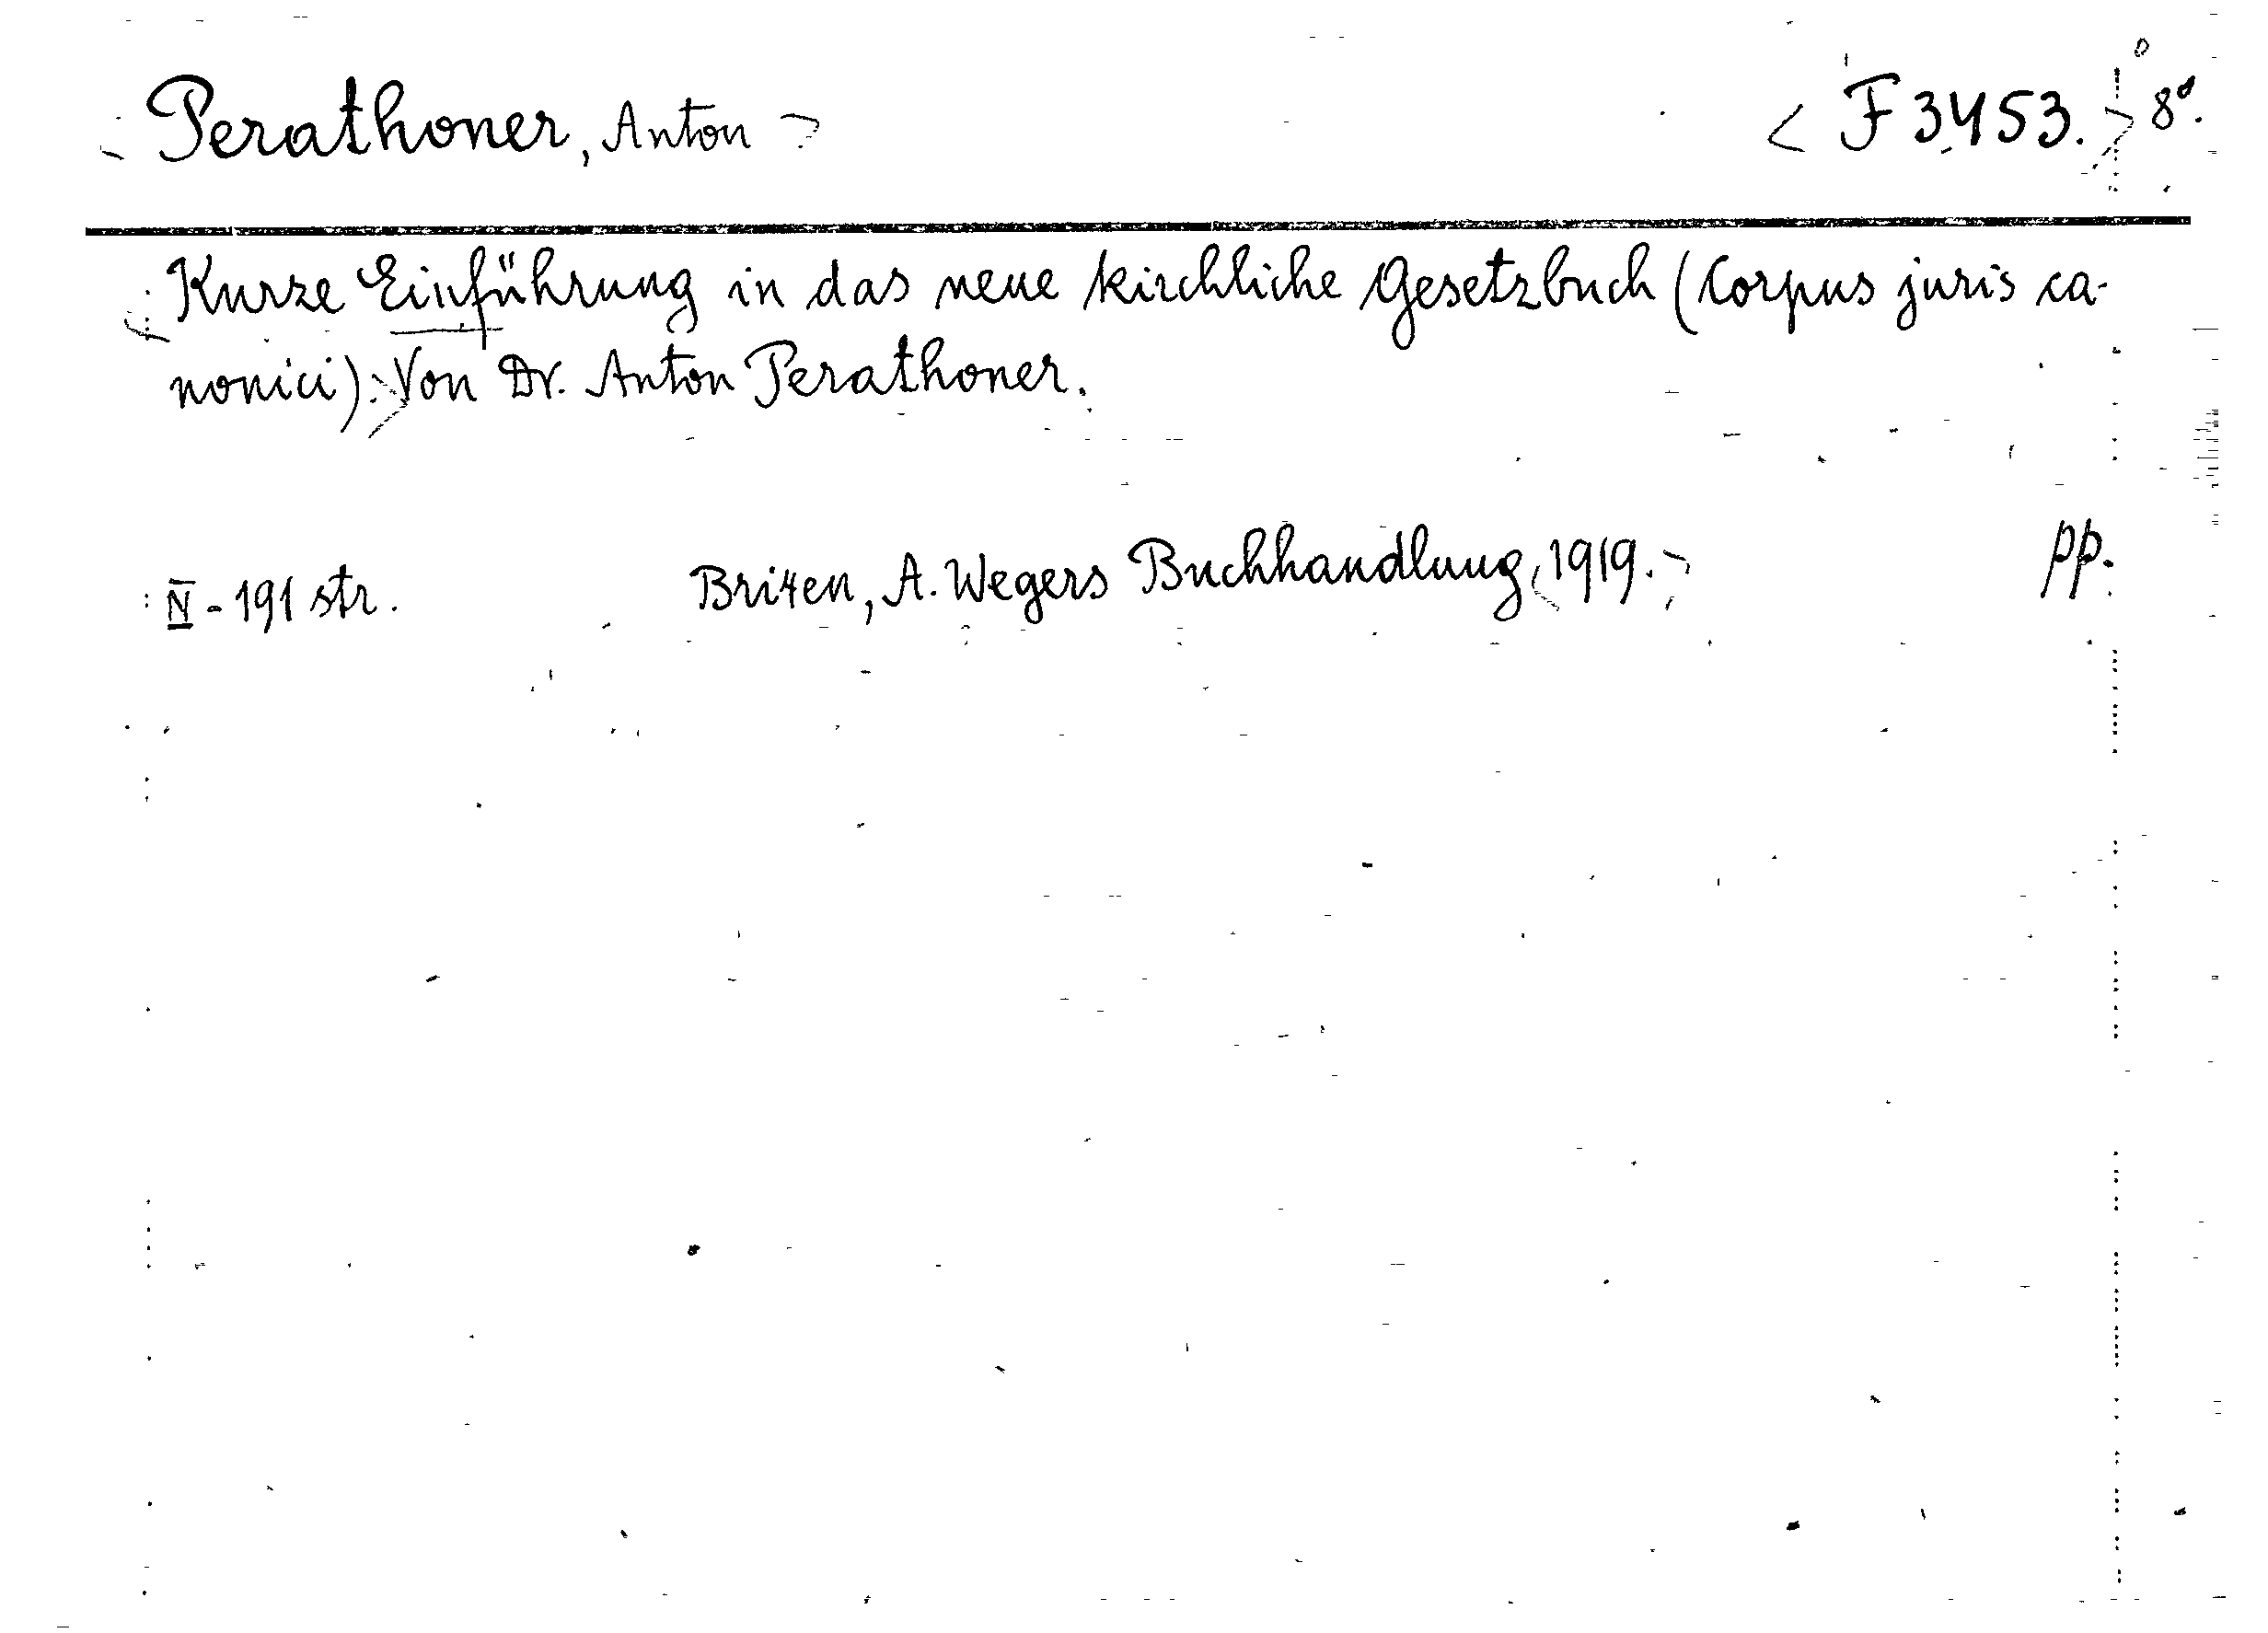 Perathoner, Anton
F 3453. 8°.
Kurze Einführung in das neue kirchliche Gesetzbuch (Corpus juris ca-
nonici). Von Dr. Anton Perathoner.
IV - 191 str. Brixen, A. Wegers Buchhandlung, 1919. pp.